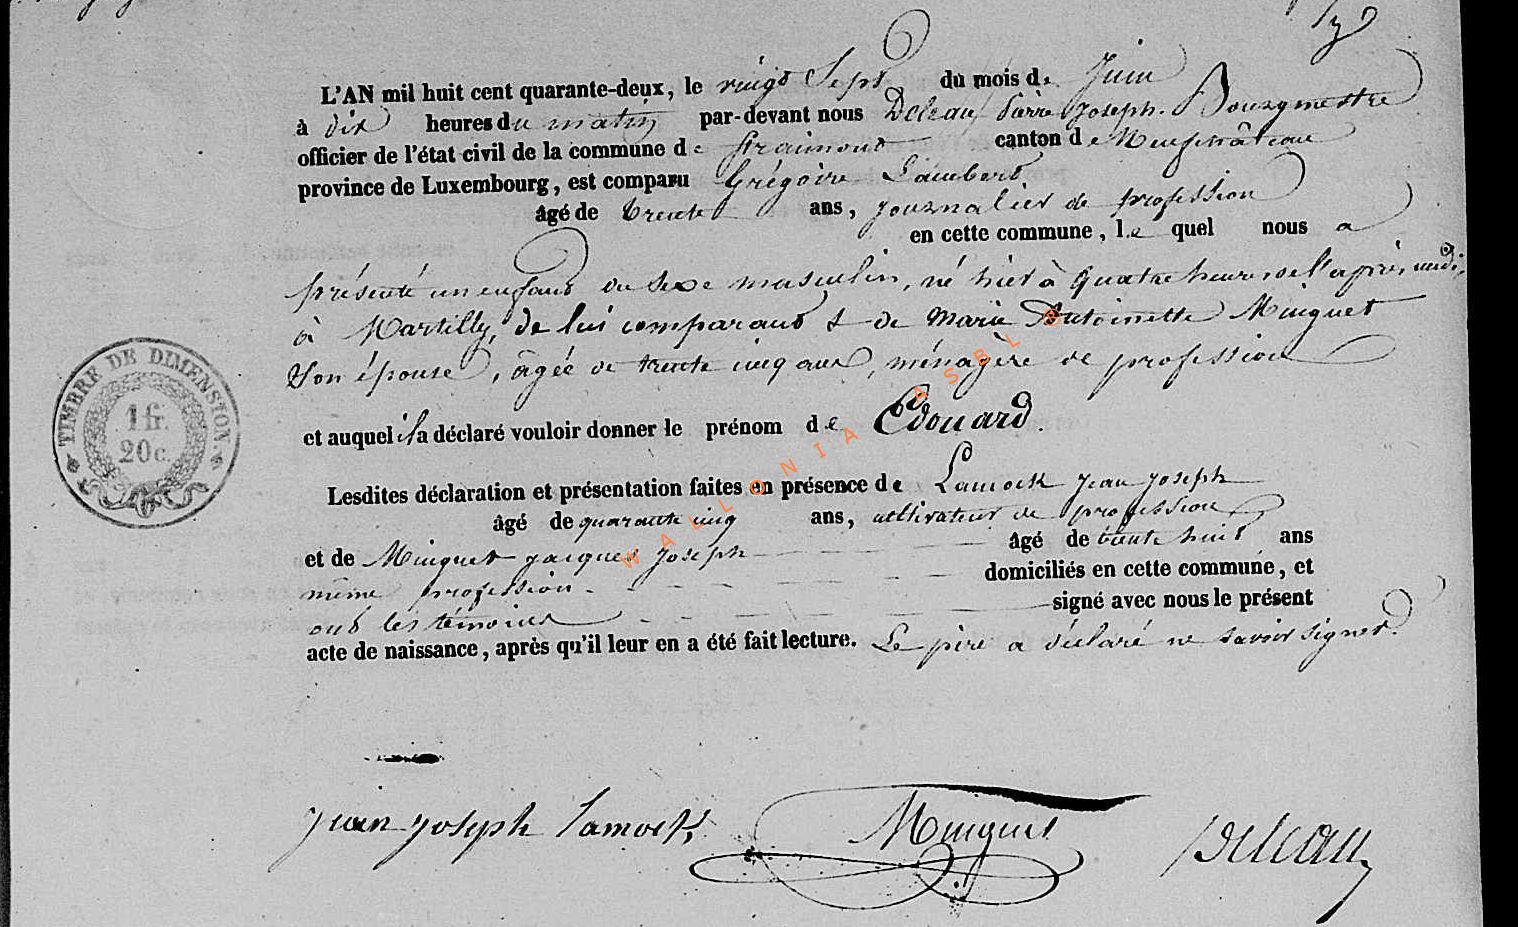 L'AN mil huit cent quarante-deux, le vingt Sept du mois de Juin
à dix heures du matin par-devant nous Deleau, Pierre Joseph. Bourgmestre
officier de l'état civil de la commune de Straimont canton de Neufchâteau
province de Luxembourg, est comparu Grégoire Lambert
âgé de trente ans, journalier de profession
en cette commune, le quel nous a
présenté un enfant du sexe masculin, né hier à quatre heures de l'après midi,
à Martilly, de lui comparant & de Marie Antoinette Minguet
son épouse, âgée de trente cinq ans, ménagère de profession
et auquel il a déclaré vouloir donner le prénom de Edouard.
Lesdites déclaration et présentation faites en présence de Lamock Jean Joseph
âgé de quarante cinq ans, cultivateur de profession
et de Minguet Jacques Joseph âgé de trente huit ans
même profession domiciliés en cette commune, et
ont les témoins signé avec nous le présent
acte de naissance, après qu'il leur en a été fait lecture. Le père a déclaré ne savoir signer.
TIMBRE DE DIMENSION
1 fr.
20 c.
WALLONIA ASBL
Jean Joseph Lamock
Minguet
Deleau